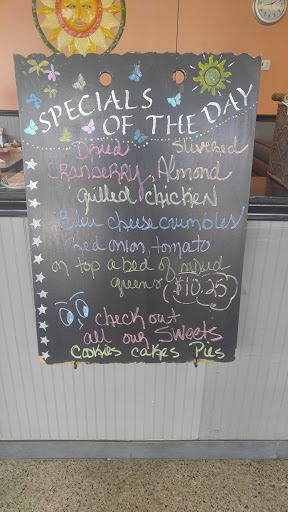 SPECIALS
OF THE DAY
Dried Slivered
Cranberry, Almond
grilled chicken
Bleu cheese crumbles
red onion, tomato
on top a bed of mixed
greens $10.25
check out
all our Sweets
Cookies cakes Pies